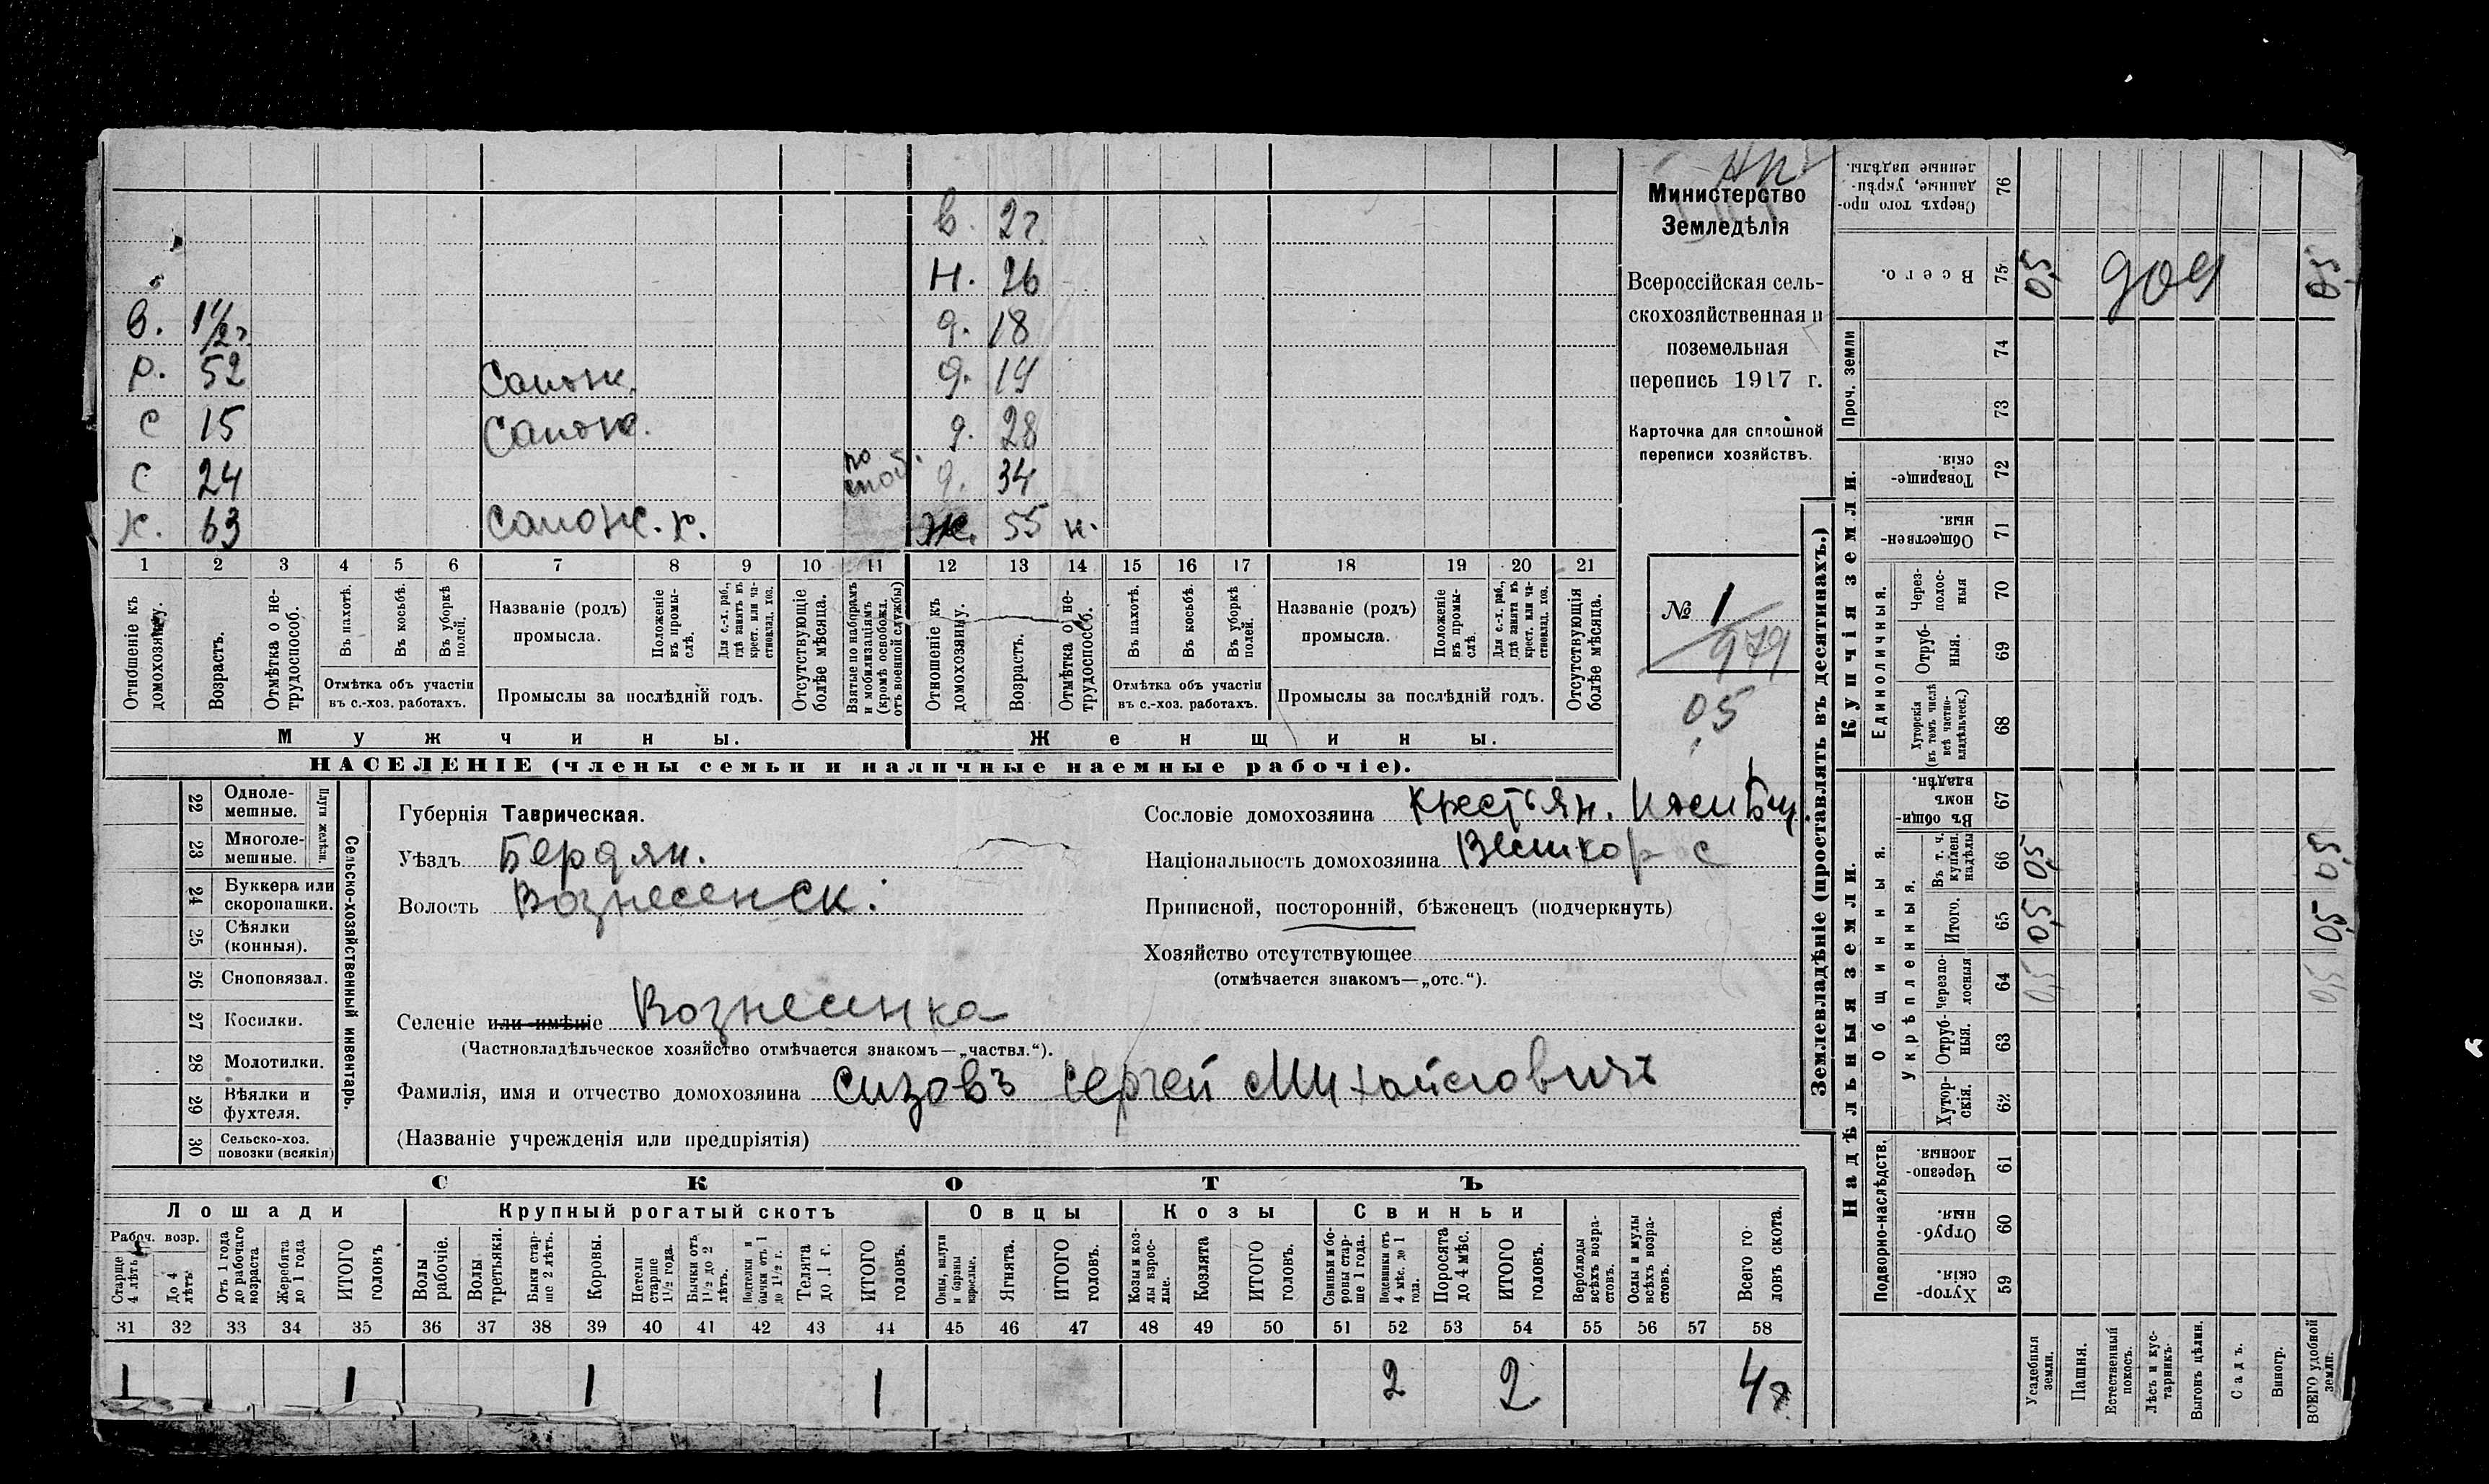 В. 2 г.
Н. 26
В. 1 1/2 г. д. 18
Р. 52 Сапож. д. 19
С 15 Сапож. д. 28
С 24 по моб. д. 34
К. 63 сапож. к. Ж. 55 н.
1 2 3 4 5 6 7 8 9 10 11 12 13 14 15 16 17 18 19 20 21
Отношеніе къ домохозяину.
Возрастъ.
Отмѣтка о нетрудоспособ.
Въ пахотѣ.
Въ косьбѣ.
Въ уборкѣ полей.
Отмѣтка объ участіи въ с.-хоз. работахъ.
Названіе (родъ) промысла.
Положеніе въ промыслѣ.
Для с.-х. раб., гдѣ занятъ въ крест. или частновлад. хоз.
Промыслы за послѣдній годъ.
Отсутствующіе болѣе мѣсяца.
Взятые по наборамъ и мобилизаціямъ (кромѣ освобожд. отъ военной службы)
Отношеніе къ домохозяину.
Возрастъ.
Отмѣтка о нетрудоспособ.
Въ пахотѣ.
Въ косьбѣ.
Въ уборкѣ полей.
Отмѣтка объ участіи въ с.-хоз. работахъ.
Названіе (родъ) промысла.
Положеніе въ промыслѣ.
Для с.-х. раб., гдѣ занята въ крест. или частновлад. хоз.
Промыслы за послѣдній годъ.
Отсутствующія болѣе мѣсяца.
Мужчины. Женщины.
НАСЕЛЕНІЕ (члены семьи и наличные наемные рабочіе).
Министерство
Земледѣлія
Всероссійская сель-
скохозяйственная и
поземельная
перепись 1917 г.
Карточка для сплошной
переписи хозяйствъ.
№ 1
979
0,5
22 Одноле-
мешные.
23 Многоле-
мешные.
Плуги желѣзн.
24 Буккера или
скоропашки.
25 Сѣялки
(конныя).
26 Сноповязал.
27 Косилки.
28 Молотилки.
29 Вѣялки и
фухтеля.
30 Сельско-хоз.
повозки (всякія)
Сельско-хозяйственный инвентарь.
Губернія Таврическая.
Уѣздъ Бердян.
Волость Вознесенск.
Сословіе домохозяина крестьян.
Національность домохозяина Великор с
Приписной, посторонній, бѣженецъ (подчеркнуть)
Хозяйство отсутствующее
(отмѣчается знакомъ—„отс.“).
Селеніе или имѣніе Вознесенка
(Частновладѣльческое хозяйство отмѣчается знакомъ—„частвл.“).
Фамилія, имя и отчество домохозяина Сизовъ Сергей Михайловичъ
(Названіе учрежденія или предпріятія)
СКОТЪ
Лошади Крупный рогатый скотъ Овцы Козы Свиньи
Рабоч. возр.
Старше 4 лѣтъ
До 4 лѣтъ
Отъ 1 года до рабочаго возраста
Жеребята до 1 года
ИТОГО головъ
Волы рабочіе.
Волы третьяки.
Быки старше 2 лѣтъ.
Коровы.
Нетели старше 1 1/2 года.
Бычки отъ 1 1/2 до 2 лѣтъ.
Подтелки и бычки отъ 1 до 1 1/2 г.
Телята до 1 г.
ИТОГО головъ.
Овцы, валухи и бараны взрослые.
Ягнята.
ИТОГО головъ.
Козы и козлы взрослые.
Козлята
ИТОГО головъ.
Свиньи и боровы старше 1 года.
Подсвинки отъ 4 мѣс. до 1 года.
Поросята до 4 мѣс.
ИТОГО головъ.
Верблюды всѣхъ возрастовъ.
Ослы и мулы всѣхъ возрастовъ.
Всего головъ скота.
31 32 33 34 35 36 37 38 39 40 41 42 43 44 45 46 47 48 49 50 51 52 53 54 55 56 57 58
1 1 1 1 2 2 4
Землевладѣніе (проставлять въ десятинахъ.)
Надѣльныя земли. Купчія земли. Проч. земли
Подворно-наслѣдств.
Общинныя.
Укрѣпленныя.
Единоличныя.
Сверхъ того проданные, укрѣпленные надѣлы. 76
Всего. 75 0,5 904 0,5
74
73
Товарищескія. 72
Общественныя. 71
Черезполосныя 70
Отрубныя. 69
Хуторскія (въ томъ числѣ всѣ частновладѣльческ.) 68
Въ общинномъ владѣн. 67
Въ т. ч. куплен. надѣлы 66 0,5 0,5
Итого. 65 0,5 0,5
Черезполосныя 64 0,5 0,5
Отрубныя. 63
Хуторскія. 62
Черезполосныя. 61
Отрубныя. 60
Хуторскія. 59
Усадебныя земли.
Пашня.
Естественный покосъ.
Лѣсъ и кустарникъ.
Выгонъ цѣлин.
Садъ.
Виногр.
ВСЕГО удобной земли.